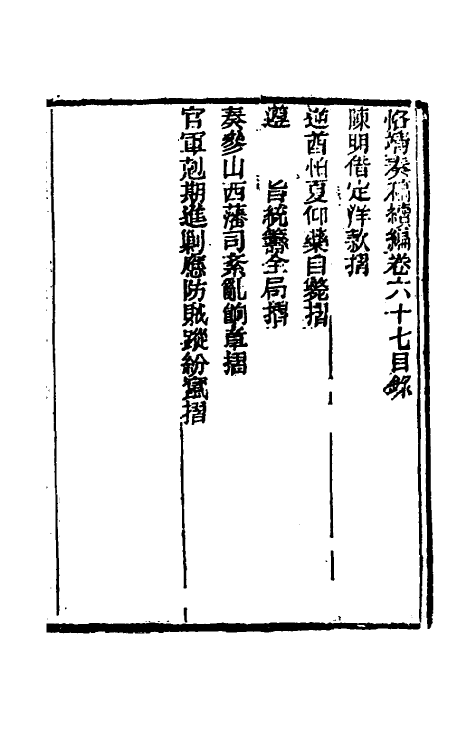 恪靖奏稿續編卷六十七目錄
陳明借定洋款摺
逆酋怕夏仰藥自斃摺
遵　旨統籌全局摺
奏參山西藩司紊亂餉章摺
官軍剋期進剿應防賊蹤紛竄摺